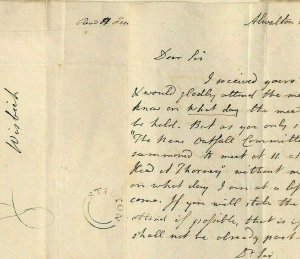 Alwalton
Dear Sir
I received yours
would gladly attend the me
know on what day the mee
be held. But as you only s
"The Nene Outfall Committe
summoned to meet at 11 o'c
Red at Thorney" without m
on what day I am at a lo
come. If you will state the
attend if possible, that is
shall not be already past
Dr Sir
Wisbech
NO